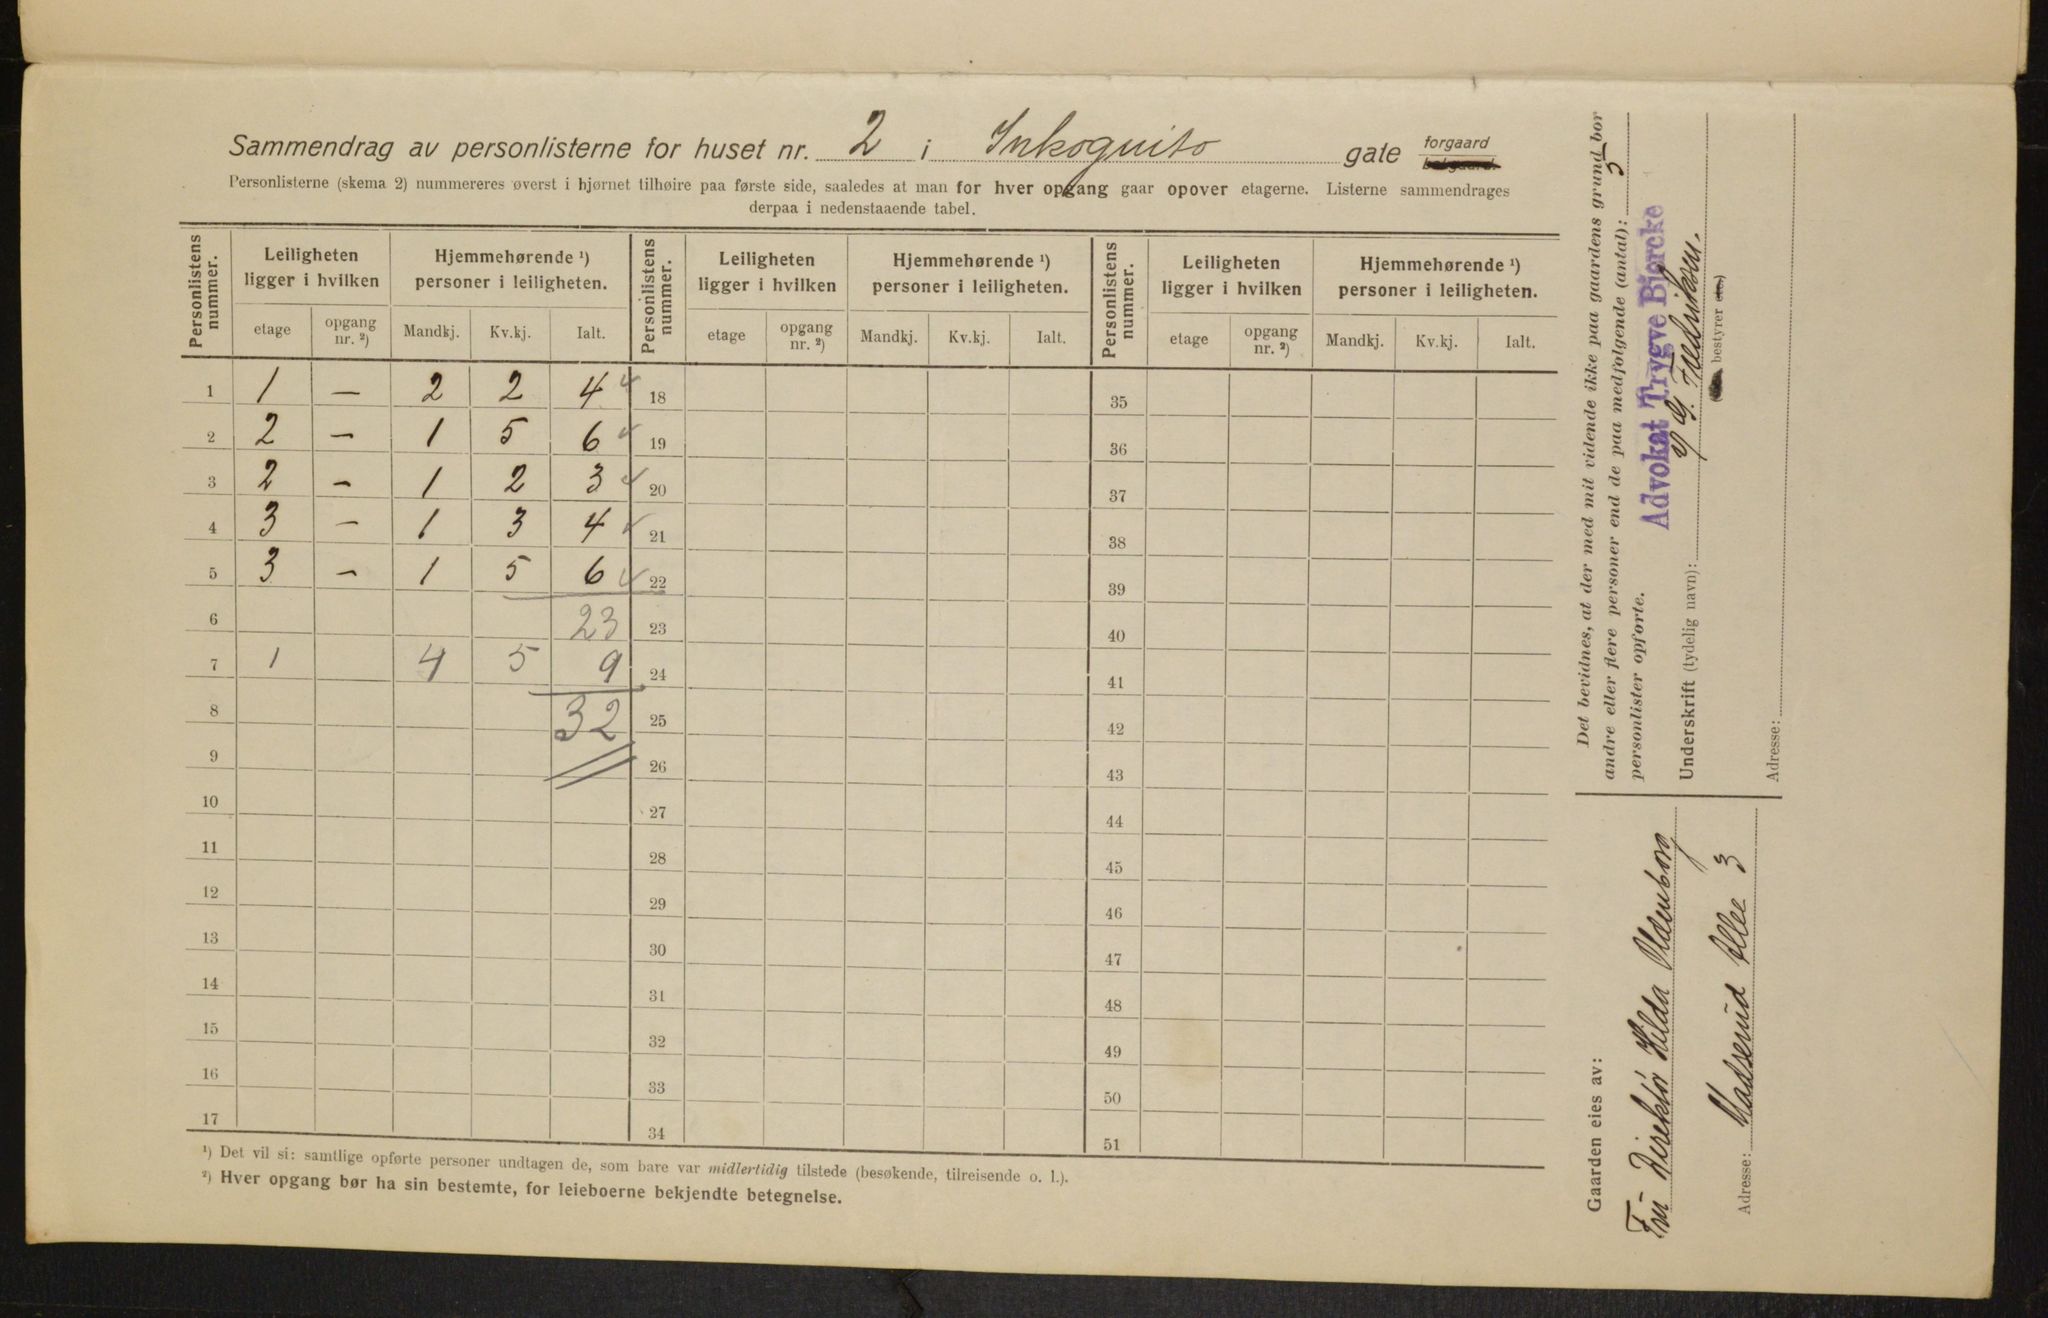 Sammendrag av personlisterne for huset nr. 2 i Inkognito gate forgaard
bakgaard.
Personlisterne (skema 2) nummereres øverst i hjørnet tilhøire paa første side, saaledes at man for hver opgang gaar opover etagerne. Listerne sammendrages
derpaa i nedenstaaende tabel.
Personlistens nummer. Leiligheten ligger i hvilken Hjemmehørende ¹) personer i leiligheten. Personlistens nummer. Leiligheten ligger i hvilken Hjemmehørende ¹) personer i leiligheten. Personlistens nummer. Leiligheten ligger i hvilken Hjemmehørende ¹) personer i leiligheten.
etage opgang nr. ²) Mandkj. Kv.kj. Ialt. etage opgang nr. ²) Mandkj. Kv.kj. Ialt. etage opgang nr. ²) Mandkj. Kv.kj. Ialt.
1 1 — 2 2 4 18 35
2 2 — 1 5 6 19 36
3 2 — 1 2 3 20 37
4 3 — 1 3 4 21 38
5 3 — 1 5 6 22 39
6 23 23 40
7 1 4 5 9 24 41
8 32 25 42
9 26 43
10 27 44
11 28 45
12 29 46
13 30 47
14 31 48
15 32 49
16 33 50
17 34 51
¹) Det vil si: samtlige opførte personer undtagen de, som bare var midlertidig tilstede (besøkende, tilreisende o. l.).
²) Hver opgang bør ha sin bestemte, for leieboerne bekjendte betegnelse.
Det bevidnes, at der med mit vidende ikke paa gaardens grund bor
andre eller flere personer end de paa medfølgende (antal): 5
personlister opførte.
Advokat Trygve Bjørcke
Underskrift (tydelig navn): G. Fredriksen.
bestyrer etc)
Adresse:
Gaarden eies av:
Fru Direktør Hilda Oldenborg
Adresse: Madserud Alle 3